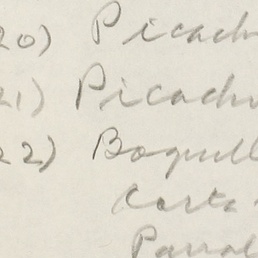 20) Picach
21) Picach
22) Boquill
Carta
Parral